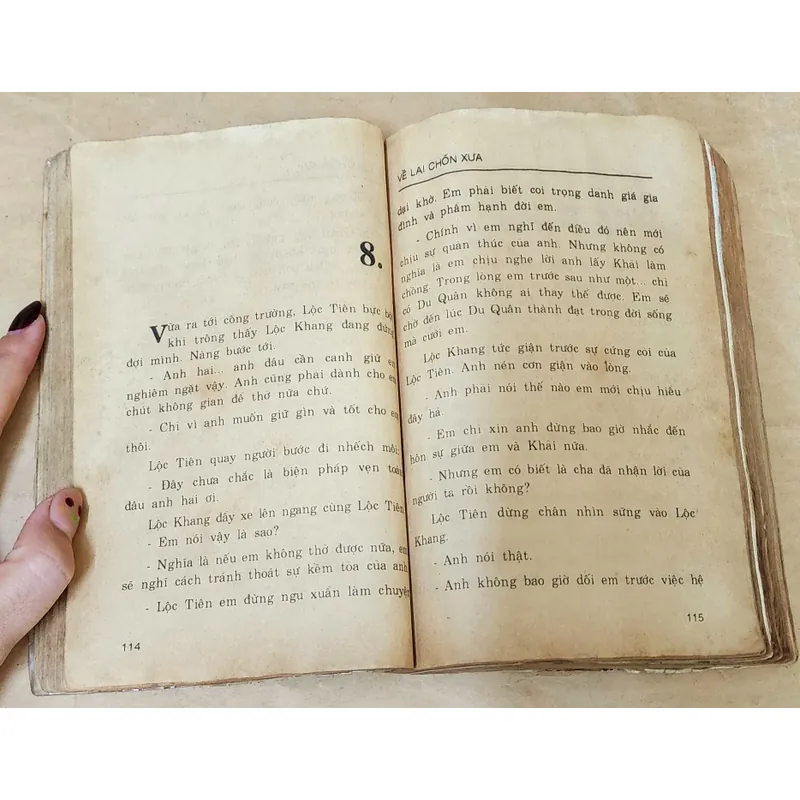 8.
Vừa ra tới công trường, Lộc Tiên bực bội
khi trông thấy Lộc Khang đang đứng
đợi mình. Nàng bước tới.
- Anh hai... anh đâu cần canh giữ em
nghiêm ngặt vậy. Anh cũng phai dành cho em
chút không gian để thở nữa chứ.
- Chỉ vì anh muốn giữ gìn và tốt cho em
thôi.
Lộc Tiên quay người bước đi nhếch môi:
- Đây chưa chắc là biện pháp vẹn toàn
đâu anh hai ơi.
Lộc Khang đẩy xe lên ngang cùng Lộc Tiên
- Em nói vậy là sao?
- Nghĩa là nếu em không thở được nữa, em
sẽ nghĩ cách tránh thoát sự kềm tỏa của anh
- Lộc Tiên em đừng ngu xuẩn làm chuyện
114
VỀ LẠI CHỐN XƯA
dại khờ. Em phải biết coi trọng danh giá gia
đình và phẩm hạnh đời em.
- Chính vì em nghĩ đến điều đó nên mới
chịu sự quản thúc của anh. Nhưng không có
nghĩa là em chịu nghe lời anh lấy Khải làm
chồng. Trong lòng em trước sau như một... chỉ
có Du Quân không ai thay thế được. Em sẽ
chờ đến lúc Du Quân thành đạt trong đời sống
mà cưới em.
Lộc Khang tức giận trước sự cứng cỏi của
Lộc Tiên. Anh nén cơn giận vào lòng.
- Anh phải nói thế nào em mới chịu hiểu
đây hả.
- Em chỉ xin anh đừng bao giờ nhắc đến
hôn sự giữa em và Khải nữa.
- Nhưng em có biết là cha đã nhận lời của
người ta rồi không?
Lộc Tiên dừng chân nhìn sững vào Lộc
Khang.
- Anh nói thật.
- Anh không bao giờ dối em trước việc hệ
115